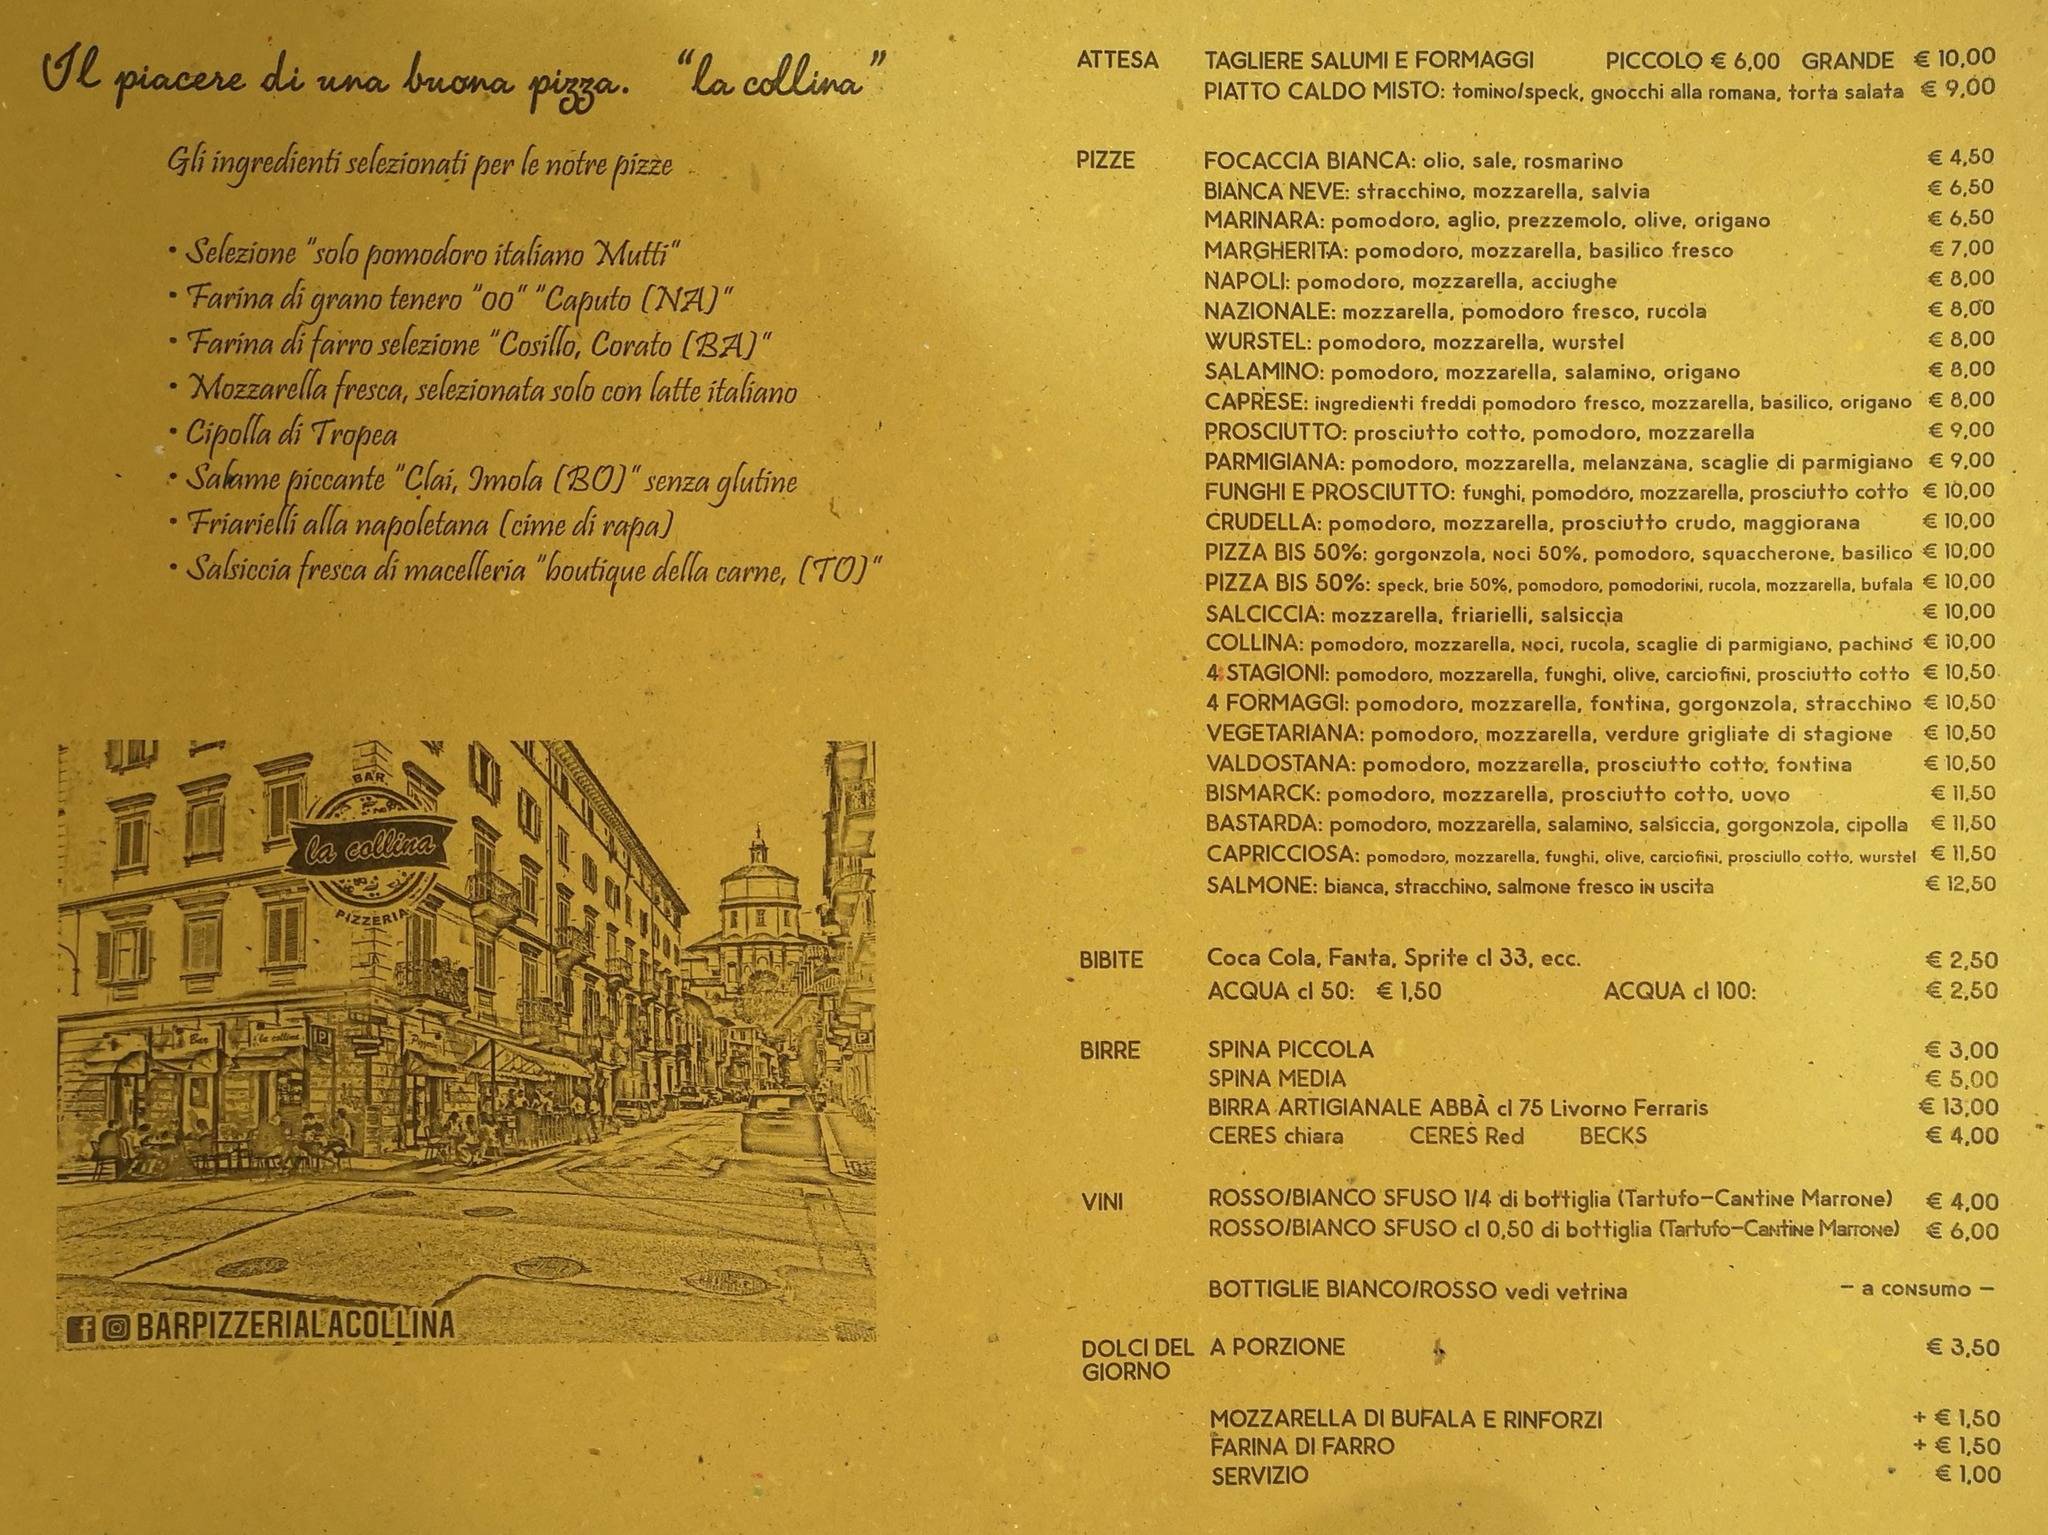 Il piacere di una buona pizza. "la collina"
Gli ingredienti selezionati per le notre pizze
• Selezione "solo pomodoro italiano Mutti"
• Farina di grano tenero "00" "Caputo (NA)"
• Farina di farro selezione "Cosillo, Corato (BA)"
• Mozzarella fresca, selezionata solo con latte italiano
• Cipolla di Tropea
• Salame piccante "Clai, Imola (BO)" senza glutine
• Friarielli alla napoletana (cime di rapa)
• Salsiccia fresca di macelleria "boutique della carne, (TO)"
BAR
la collina
PIZZERIA
Bar
la collina
P
Pizzeria
BARPIZZERIALACOLLINA
ATTESA TAGLIERE SALUMI E FORMAGGI PICCOLO € 6,00 GRANDE € 10,00
PIATTO CALDO MISTO: tomino/speck, gnocchi alla romana, torta salata € 9,00
PIZZE FOCACCIA BIANCA: olio, sale, rosmarino € 4,50
BIANCA NEVE: stracchino, mozzarella, salvia € 6,50
MARINARA: pomodoro, aglio, prezzemolo, olive, origano € 6,50
MARGHERITA: pomodoro, mozzarella, basilico fresco € 7,00
NAPOLI: pomodoro, mozzarella, acciughe € 8,00
NAZIONALE: mozzarella, pomodoro fresco, rucola € 8,00
WURSTEL: pomodoro, mozzarella, wurstel € 8,00
SALAMINO: pomodoro, mozzarella, salamino, origano € 8,00
CAPRESE: ingredienti freddi pomodoro fresco, mozzarella, basilico, origano € 8,00
PROSCIUTTO: prosciutto cotto, pomodoro, mozzarella € 9,00
PARMIGIANA: pomodoro, mozzarella, melanzana, scaglie di parmigiano € 9,00
FUNGHI E PROSCIUTTO: funghi, pomodoro, mozzarella, prosciutto cotto € 10,00
CRUDELLA: pomodoro, mozzarella, prosciutto crudo, maggiorana € 10,00
PIZZA BIS 50%: gorgonzola, noci 50%, pomodoro, squaccherone, basilico € 10,00
PIZZA BIS 50%: speck, brie 50%, pomodoro, pomodorini, rucola, mozzarella, bufala € 10,00
SALCICCIA: mozzarella, friarielli, salsiccia € 10,00
COLLINA: pomodoro, mozzarella, noci, rucola, scaglie di parmigiano, pachino € 10,00
4 STAGIONI: pomodoro, mozzarella, funghi, olive, carciofini, prosciutto cotto € 10,50
4 FORMAGGI: pomodoro, mozzarella, fontina, gorgonzola, stracchino € 10,50
VEGETARIANA: pomodoro, mozzarella, verdure grigliate di stagione € 10,50
VALDOSTANA: pomodoro, mozzarella, prosciutto cotto, fontina € 10,50
BISMARCK: pomodoro, mozzarella, prosciutto cotto, uovo € 11,50
BASTARDA: pomodoro, mozzarella, salamino, salsiccia, gorgonzola, cipolla € 11,50
CAPRICCIOSA: pomodoro, mozzarella, funghi, olive, carciofini, prosciullo cotto, wurstel € 11,50
SALMONE: bianca, stracchino, salmone fresco in uscita € 12,50
BIBITE Coca Cola, Fanta, Sprite cl 33, ecc. € 2,50
ACQUA cl 50: € 1,50 ACQUA cl 100: € 2,50
BIRRE SPINA PICCOLA € 3,00
SPINA MEDIA € 5,00
BIRRA ARTIGIANALE ABBÀ cl 75 Livorno Ferraris € 13,00
CERES chiara CERES Red BECKS € 4,00
VINI ROSSO/BIANCO SFUSO 1/4 di bottiglia (Tartufo-Cantine Marrone) € 4,00
ROSSO/BIANCO SFUSO cl 0,50 di bottiglia (Tartufo-Cantine Marrone) € 6,00
BOTTIGLIE BIANCO/ROSSO vedi vetrina - a consumo -
DOLCI DEL A PORZIONE € 3,50
GIORNO
MOZZARELLA DI BUFALA E RINFORZI + € 1,50
FARINA DI FARRO + € 1,50
SERVIZIO € 1,00